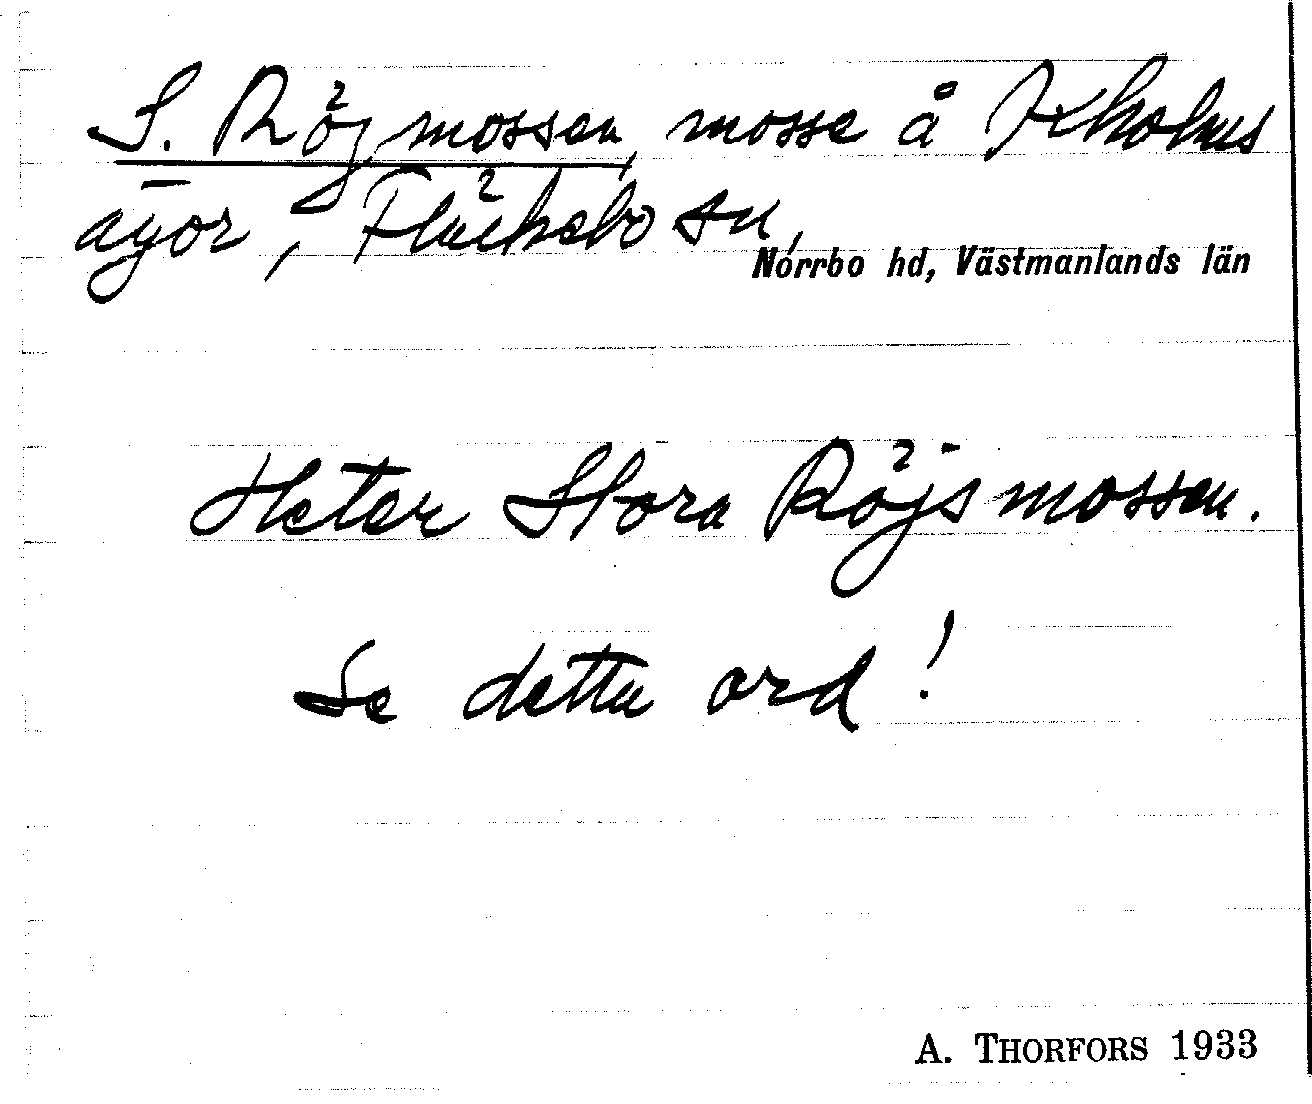 S. Röjmossen, mosse å Ekholms
ägor, Fläckebo sn,
Norrbo hd, Västmanlands län
Heter Stora Röjsmossen.
Se detta ord!
A. THORFORS 1933